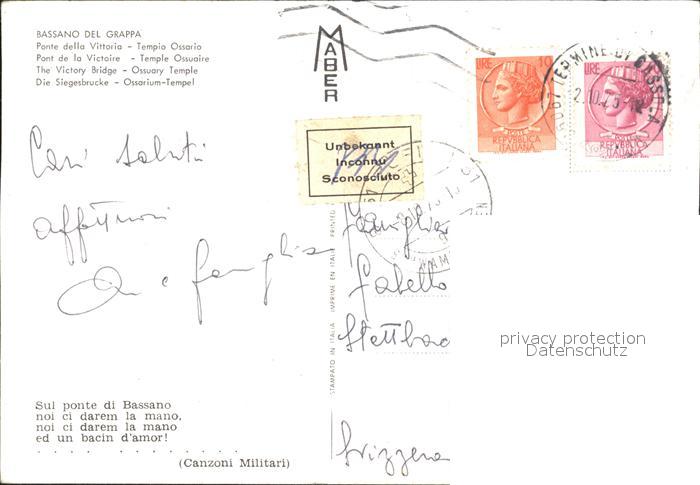 BASSANO DEL GRAPPA
Ponte della Vittoria - Tempio Ossario
Pont de la Victoire - Temple Ossuaire
The Victory Bridge - Ossuary Temple
Die Siegesbrucke - Ossarium-Tempel
MABER
LIRE 10
POSTE
REPVBBLICA
ITALIANA
LIRE
POSTE
REPVBBLICA
ITALIANA
TERMINE DI CASSOLA
Unbekannt
Inconnu
Sconosciuto
Cari saluti
affettuosi
e famiglia
Famiglia
Svizzera
STAMPATO IN ITALIA IMPRIME EN ITALIE PRINTED
privacy protection
Datenschutz
Sul ponte di Bassano
noi ci darem la mano,
noi ci darem la mano
ed un bacin d'amor!
. . . . . . . . . . . .
(Canzoni Militari)